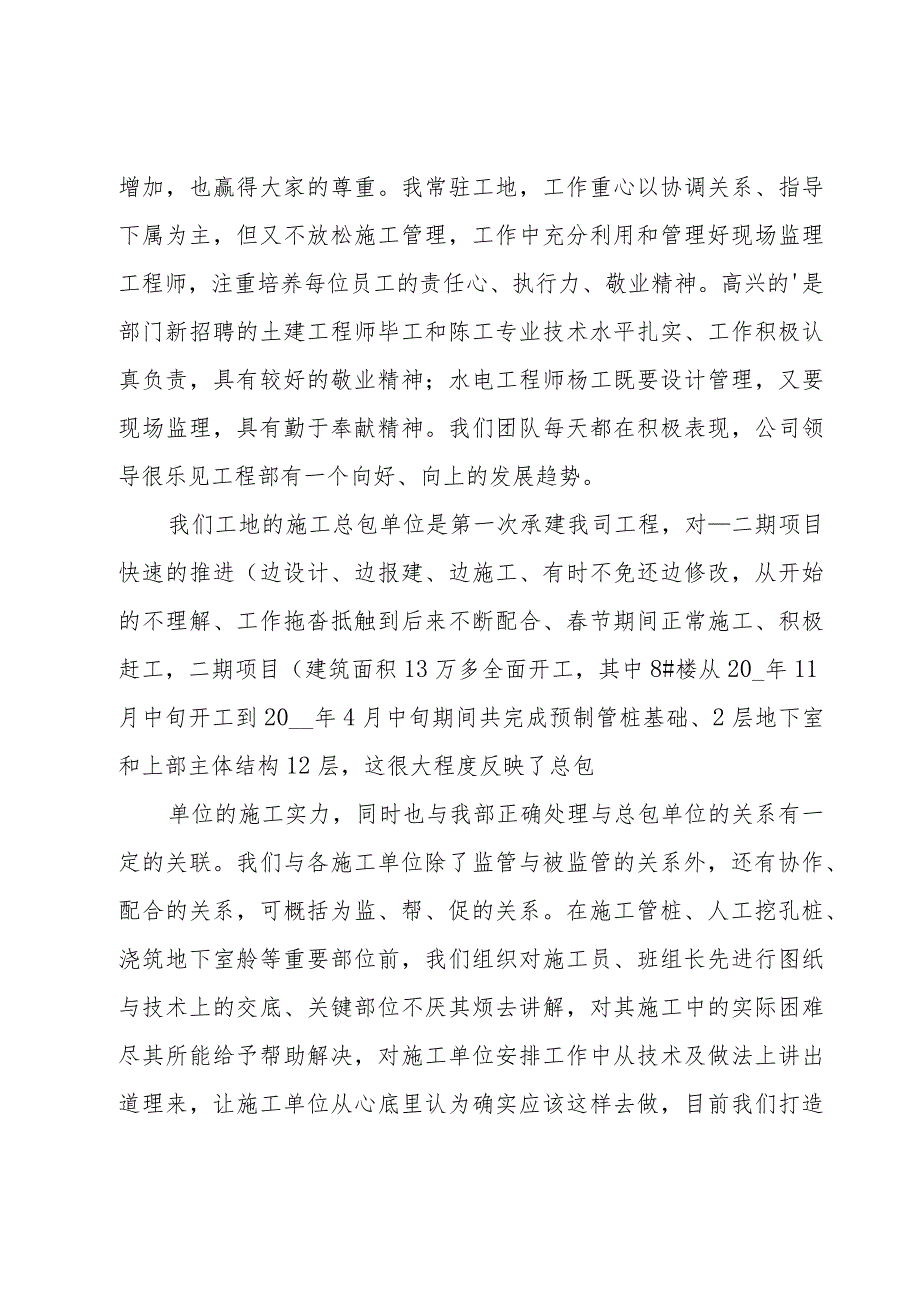 增加，也赢得大家的尊重。我常驻工地，工作重心以协调关系、指导
下属为主，但又不放松施工管理，工作中充分利用和管理好现场监理
工程师，注重培养每位员工的责任心、执行力、敬业精神。高兴的'是
部门新招聘的土建工程师毕工和陈工专业技术水平扎实、工作积极认
真负责，具有较好的敬业精神；水电工程师杨工既要设计管理，又要
现场监理，具有勤于奉献精神。我们团队每天都在积极表现，公司领
导很乐见工程部有一个向好、向上的发展趋势。
我们工地的施工总包单位是第一次承建我司工程，对—二期项目
快速的推进（边设计、边报建、边施工、有时不免还边修改，从开始
的不理解、工作拖沓抵触到后来不断配合、春节期间正常施工、积极
赶工，二期项目（建筑面积13万多全面开工，其中8#楼从20_年11
月中旬开工到20__年4月中旬期间共完成预制管桩基础、2层地下室
和上部主体结构12层，这很大程度反映了总包
单位的施工实力，同时也与我部正确处理与总包单位的关系有一
定的关联。我们与各施工单位除了监管与被监管的关系外，还有协作、
配合的关系，可概括为监、帮、促的关系。在施工管桩、人工挖孔桩、
浇筑地下室舲等重要部位前，我们组织对施工员、班组长先进行图纸
与技术上的交底、关键部位不厌其烦去讲解，对其施工中的实际困难
尽其所能给予帮助解决，对施工单位安排工作中从技术及做法上讲出
道理来，让施工单位从心底里认为确实应该这样去做，目前我们打造